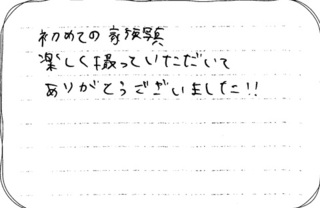 初めての家族写真
楽しく撮っていただいて
ありがとうございました!!